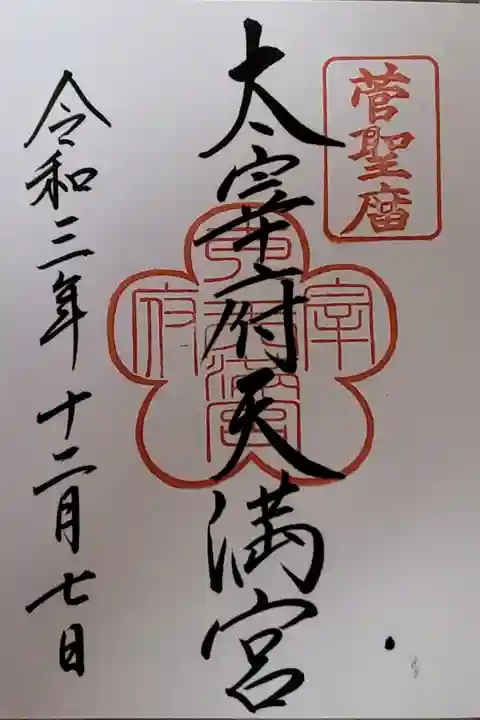 菅聖庿
太宰府天満宮
令和三年十二月七日